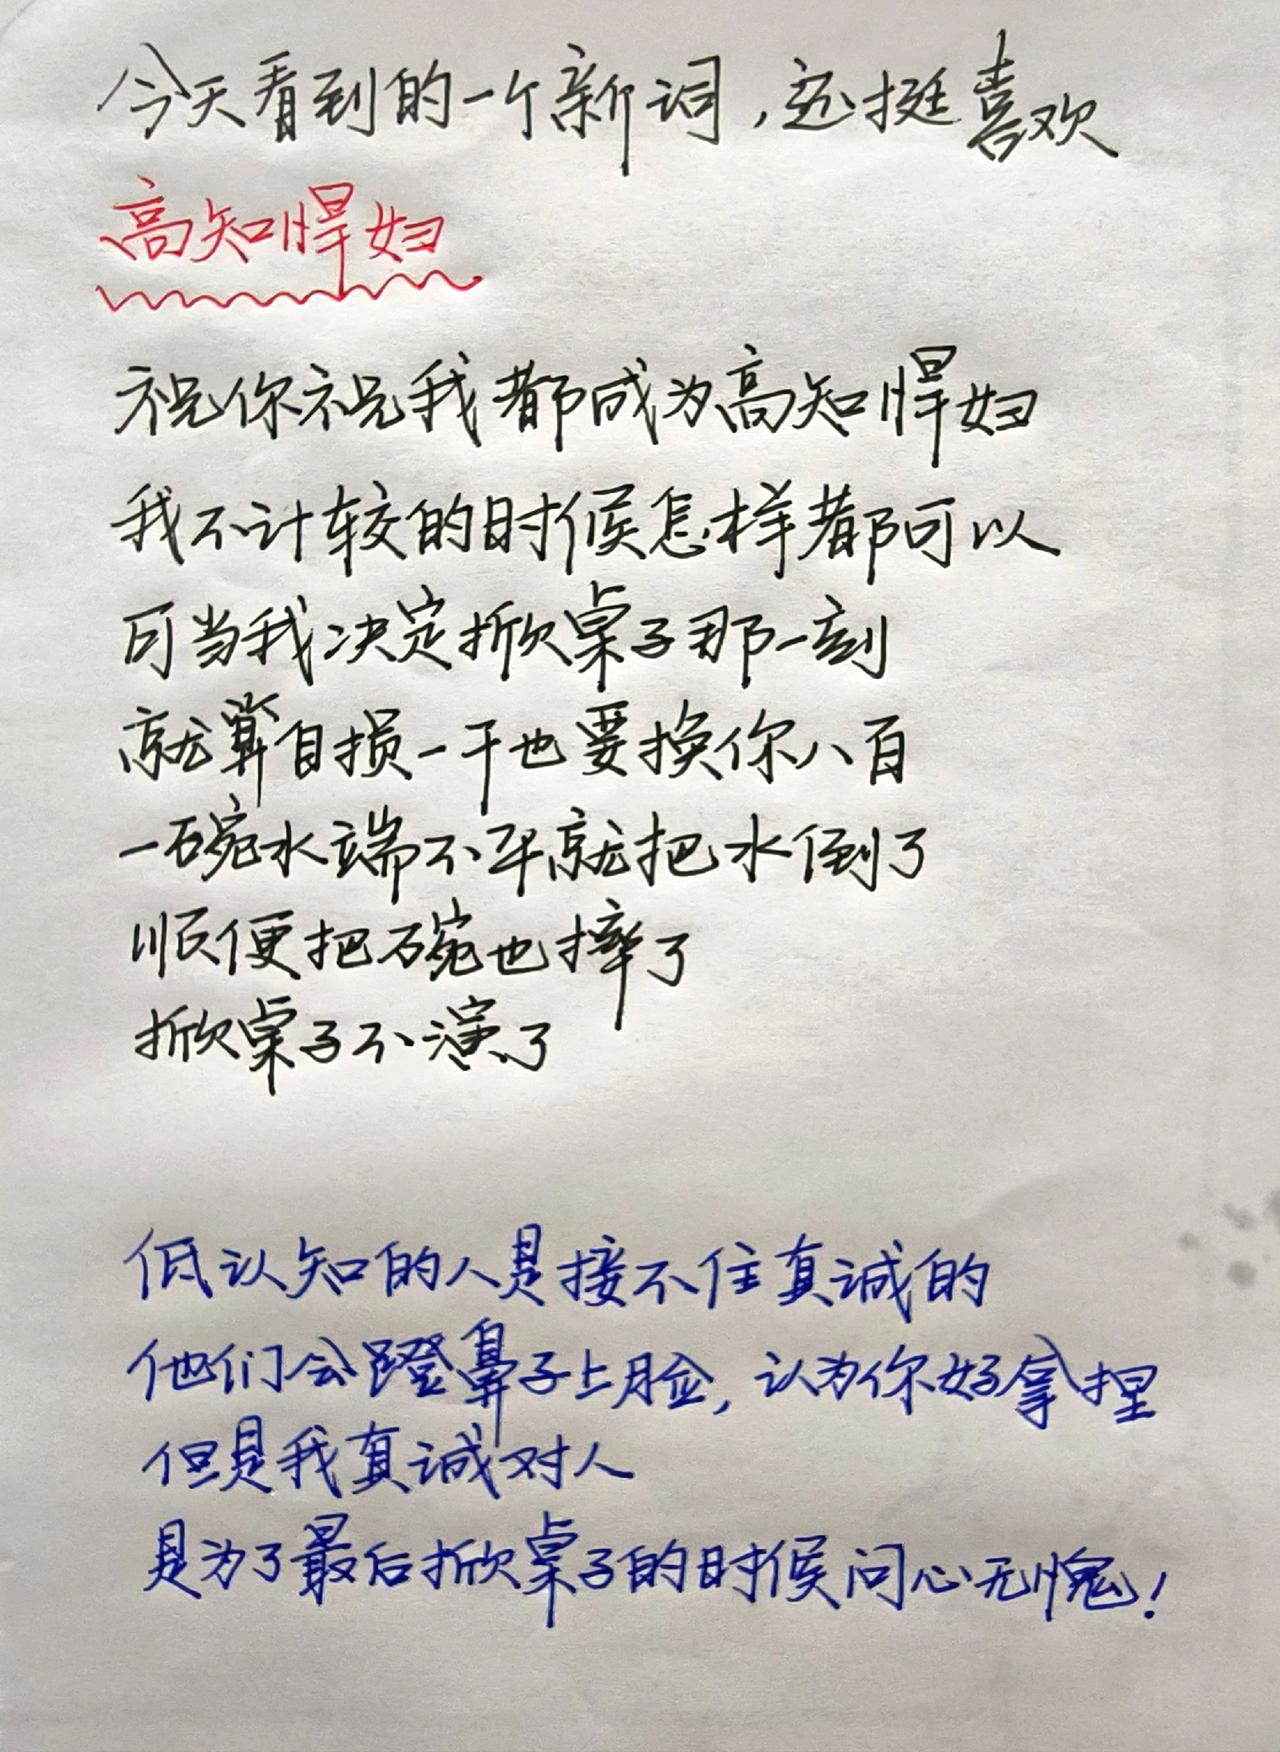 今天看到的一个新词，还挺喜欢
高知悍妇
祝你祝我都成为高知悍妇
我不计较的时候怎样都可以
可当我决定掀桌子那一刻
就算自损一千也要换你八百
一碗水端不平就把水倒了
顺便把碗也摔了
掀桌子不演了
低认知的人是接不住真诚的
他们会蹬鼻子上脸，认为你好拿捏
但是我真诚对人
是为了最后掀桌子的时候问心无愧！